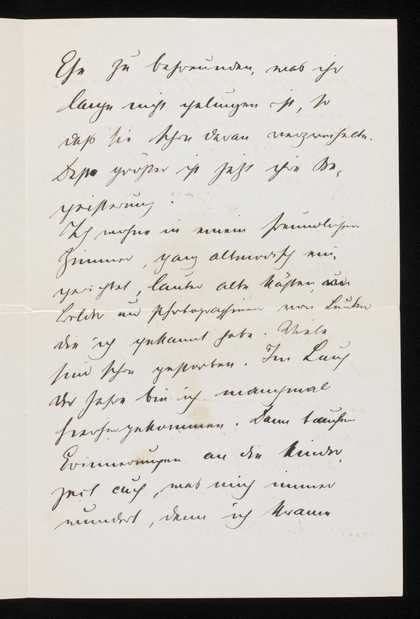 Ehe zu befreunden, was ihr
lange nicht gelungen ist, so
daß sie schon daran verzweifelte.
Desto größer ist jetzt ihre Be-
geisterung.
Ich wohne in einem freundlichen
Zimmer, ganz altmodisch ein-
gerichtet, lauter alte Kästen,
Bilder und Photographien von Leuten
die ich gekannt habe. Viele
sind schon gestorben. Im Lauf
der Jahre bin ich manchmal
hierhergekommen. Dann tauchen
Erinnerungen an die Kinder-
zeit auf, was mich immer
wundert, denn ich krame